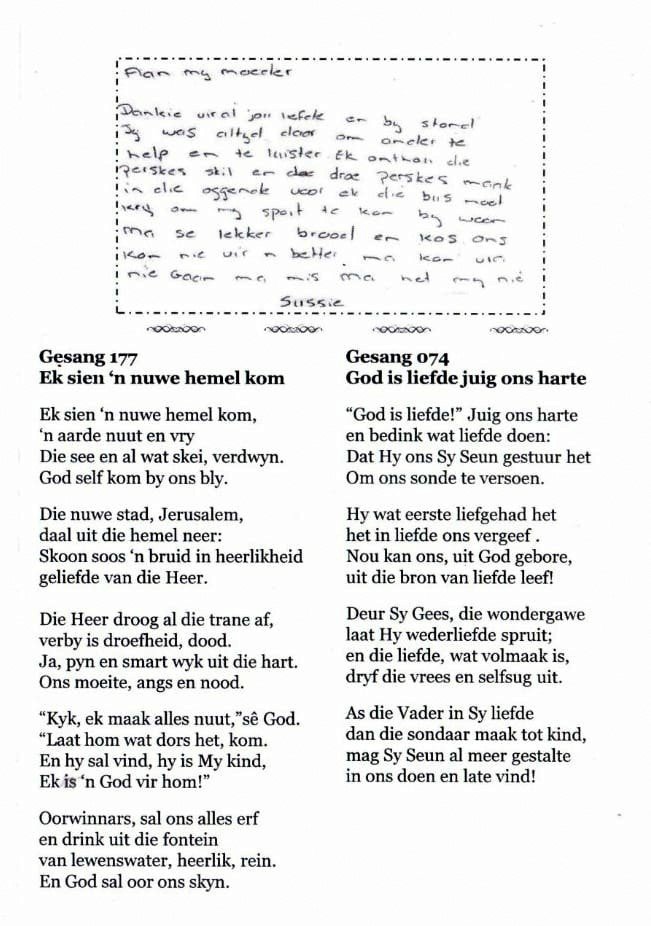 Aan my moeder
Dankie vir al jou liefde en by stand
Jy was altyd daar om ander te
help en te luister Ek onthou die
Perskes skil en droe Perskes maak
in die oggende voor ek die bus moet
kry om my sport te kom by woon
Ma se lekker brood en kos ons
kon nie vir n better ma kon
nie Gaan ma mis Ma het my nie
Sussie
Gesang 177
Ek sien ‘n nuwe hemel kom
Ek sien ‘n nuwe hemel kom,
‘n aarde nuut en vry
Die see en al wat skei, verdwyn.
God self kom by ons bly.
Die nuwe stad, Jerusalem,
daal uit die hemel neer:
Skoon soos ‘n bruid in heerlikheid
geliefde van die Heer.
Die Heer droog al die trane af,
verby is droefheid, dood.
Ja, pyn en smart wyk uit die hart.
Ons moeite, angs en nood.
“Kyk, ek maak alles nuut,”sê God.
“Laat hom wat dors het, kom.
En hy sal vind, hy is My kind,
Ek is ‘n God vir hom!”
Oorwinnars, sal ons alles erf
en drink uit die fontein
van lewenswater, heerlik, rein.
En God sal oor ons skyn.
Gesang 074
God is liefde juig ons harte
“God is liefde!” Juig ons harte
en bedink wat liefde doen:
Dat Hy ons Sy Seun gestuur het
Om ons sonde te versoen.
Hy wat eerste liefgehad het
het in liefde ons vergeef .
Nou kan ons, uit God gebore,
uit die bron van liefde leef!
Deur Sy Gees, die wondergawe
laat Hy wederliefde spruit;
en die liefde, wat volmaak is,
dryf die vrees en selfsug uit.
As die Vader in Sy liefde
dan die sondaar maak tot kind,
mag Sy Seun al meer gestalte
in ons doen en late vind!